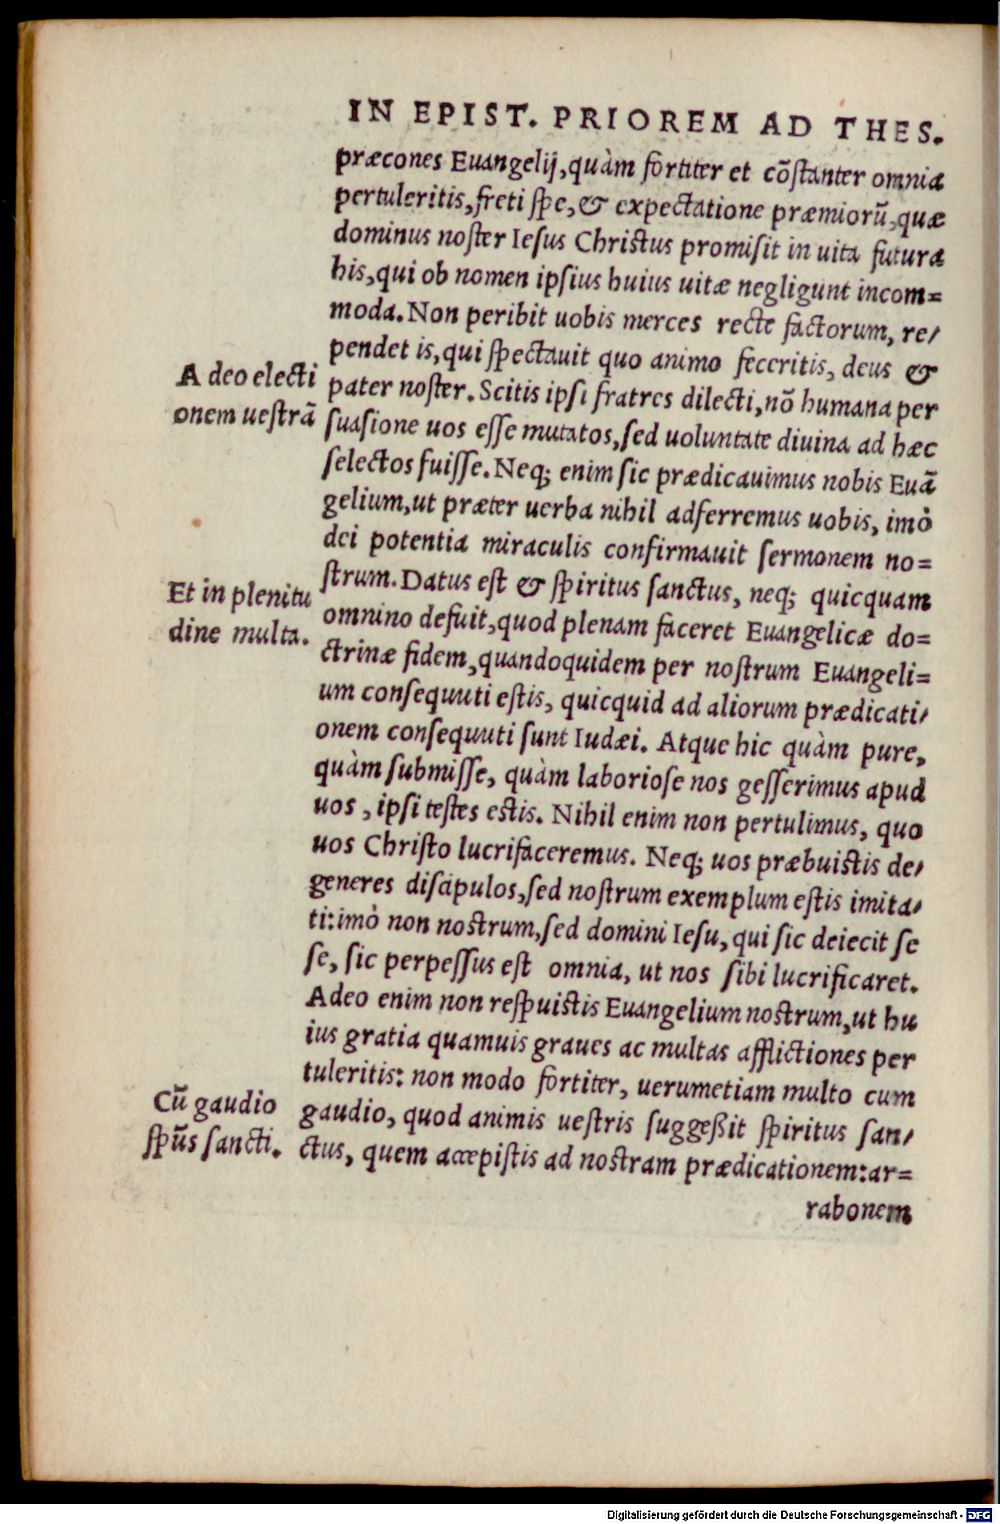 IN EPIST. PRIOREM AD THES.
præcones Euangelij, quàm fortiter et cōstanter omnia
pertuleritis, freti spe, & expectatione præmiorū, quæ
dominus noster Iesus Christus promisit in uita futura
his, qui ob nomen ipsius huius uitæ negligunt incom=
moda. Non peribit uobis merces recte factorum, re/
pendet is, qui spectauit quo animo feceritis, deus &
A deo electi
onem uestrā
pater noster. Scitis ipsi fratres dilecti, nō humana per
suasione uos esse mutatos, sed uoluntate diuina ad hæc
selectos fuisse. Neq; enim sic prædicauimus nobis Euā
gelium, ut præter uerba nihil adferremus uobis, imò
dei potentia miraculis confirmauit sermonem no=
strum. Datus est & spiritus sanctus, neq; quicquam
Et in plenitu
dine multa.
omnino defuit, quod plenam faceret Euangelicæ do=
ctrinæ fidem, quandoquidem per nostrum Euangeli=
um consequuti estis, quicquid ad aliorum prædicati/
onem consequuti sunt Iudæi. Atque hic quàm pure,
quàm submisse, quàm laboriose nos gesserimus apud
uos, ipsi testes estis. Nihil enim non pertulimus, quo
uos Christo lucrifaceremus. Neq; uos præbuistis de/
generes discipulos, sed nostrum exemplum estis imita/
ti: imò non nostrum, sed domini Iesu, qui sic deiecit se
se, sic perpessus est omnia, ut nos sibi lucrificaret.
Adeo enim non respuistis Euangelium nostrum, ut hu
ius gratia quamuis graues ac multas afflictiones per
tuleritis: non modo fortiter, uerumetiam multo cum
Cū gaudio
spūs sancti.
gaudio, quod animis uestris suggeßit spiritus san/
ctus, quem accepistis ad nostram prædicationem: ar=
rabonem
Digitalisierung gefördert durch die Deutsche Forschungsgemeinschaft - DFG